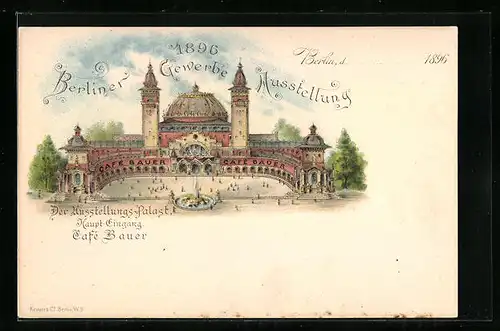 1896
Berliner Gewerbe Ausstellung
Berlin, d. 1896
CAFÉ BAUER CAFÉ BAUER
Der Ausstellungs-Palast,
Haupt-Eingang.
Café Bauer
Berlin W. 9